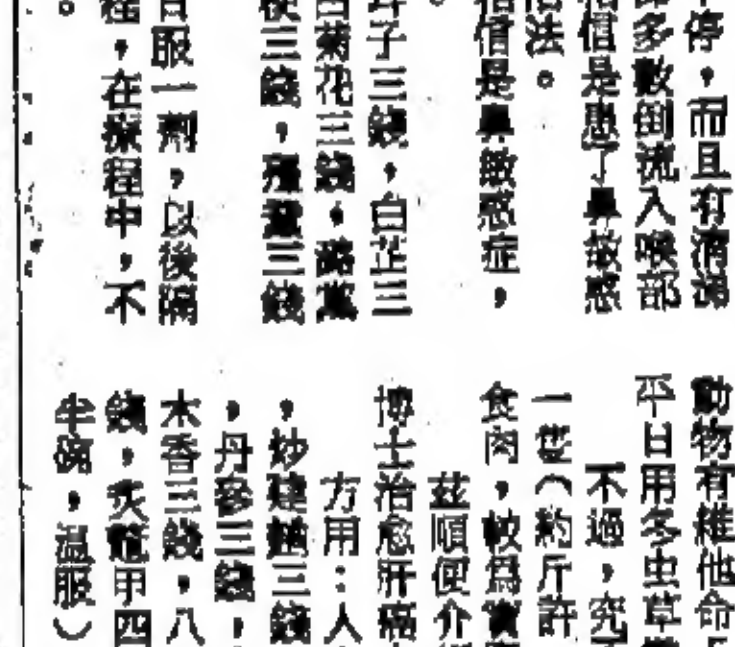 不停，而且有消
多數倒流入喉部
信是患了鼻敏感
治法。
信是鼻敏感症，
。
耳子三錢，白芷三
白菊花三錢，
三錢，三錢
日服一劑，以後隔
程，在療程中，不
。
動物有維他命
平日用冬虫草
不過，究
一隻（約斤許
食肉，較為實
茲順便介
博士治愈肝癌
方用：人
，炒建三錢
，丹參三錢，
木香三錢，八
錢，炙龜甲四
半碗，温服）